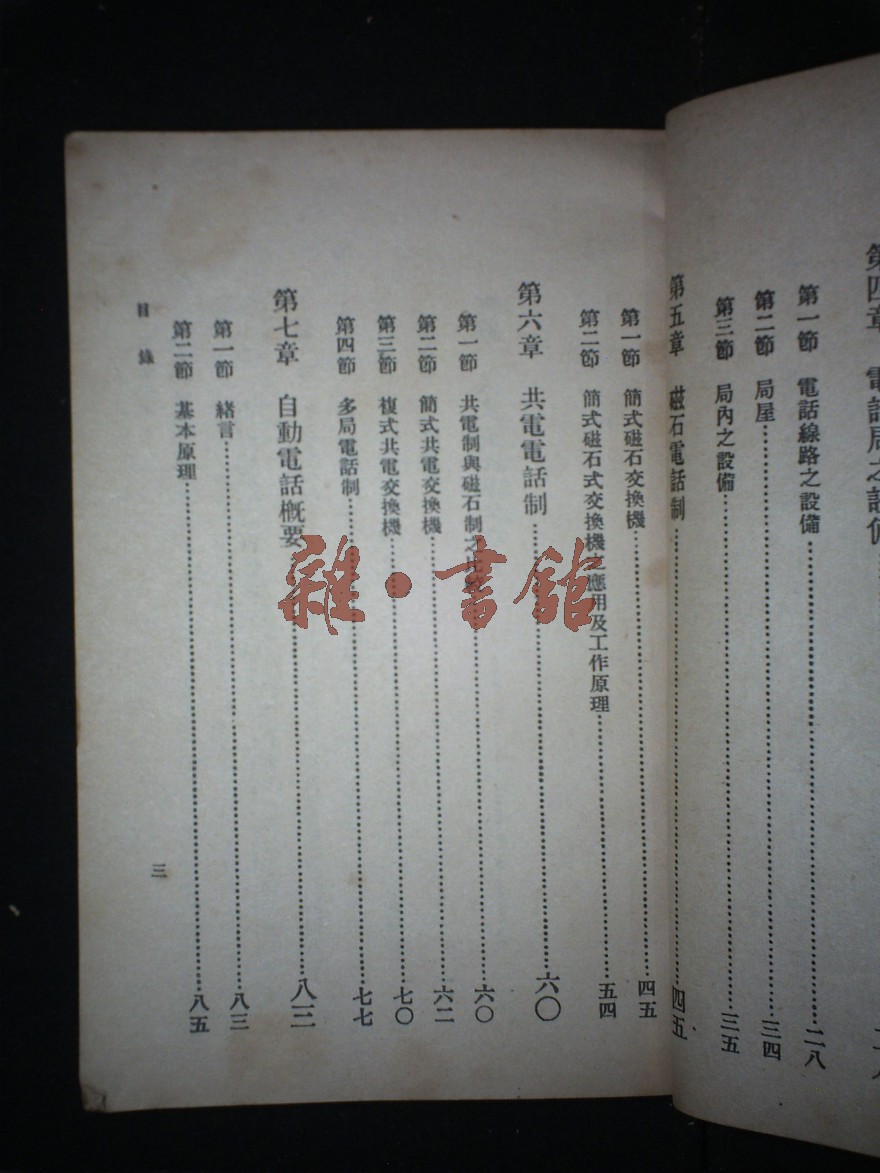 第四章 電話局之設備
第一節 電話線路之設備……二八
第二節 局屋……三四
第三節 局內之設備……三五
第五章 磁石電話制……四五
第一節 簡式磁石交換機……四五
第二節 簡式磁石式交換機之應用及工作原理……五四
第六章 共電電話制……六〇
第一節 共電制與磁石制之比較……六〇
第二節 簡式共電交換機……六二
第三節 複式共電交換機……七〇
第四節 多局電話制……七七
第七章 自動電話概要……八三
第一節 緒言……八三
第二節 基本原理……八五
目錄
三
雜·書館